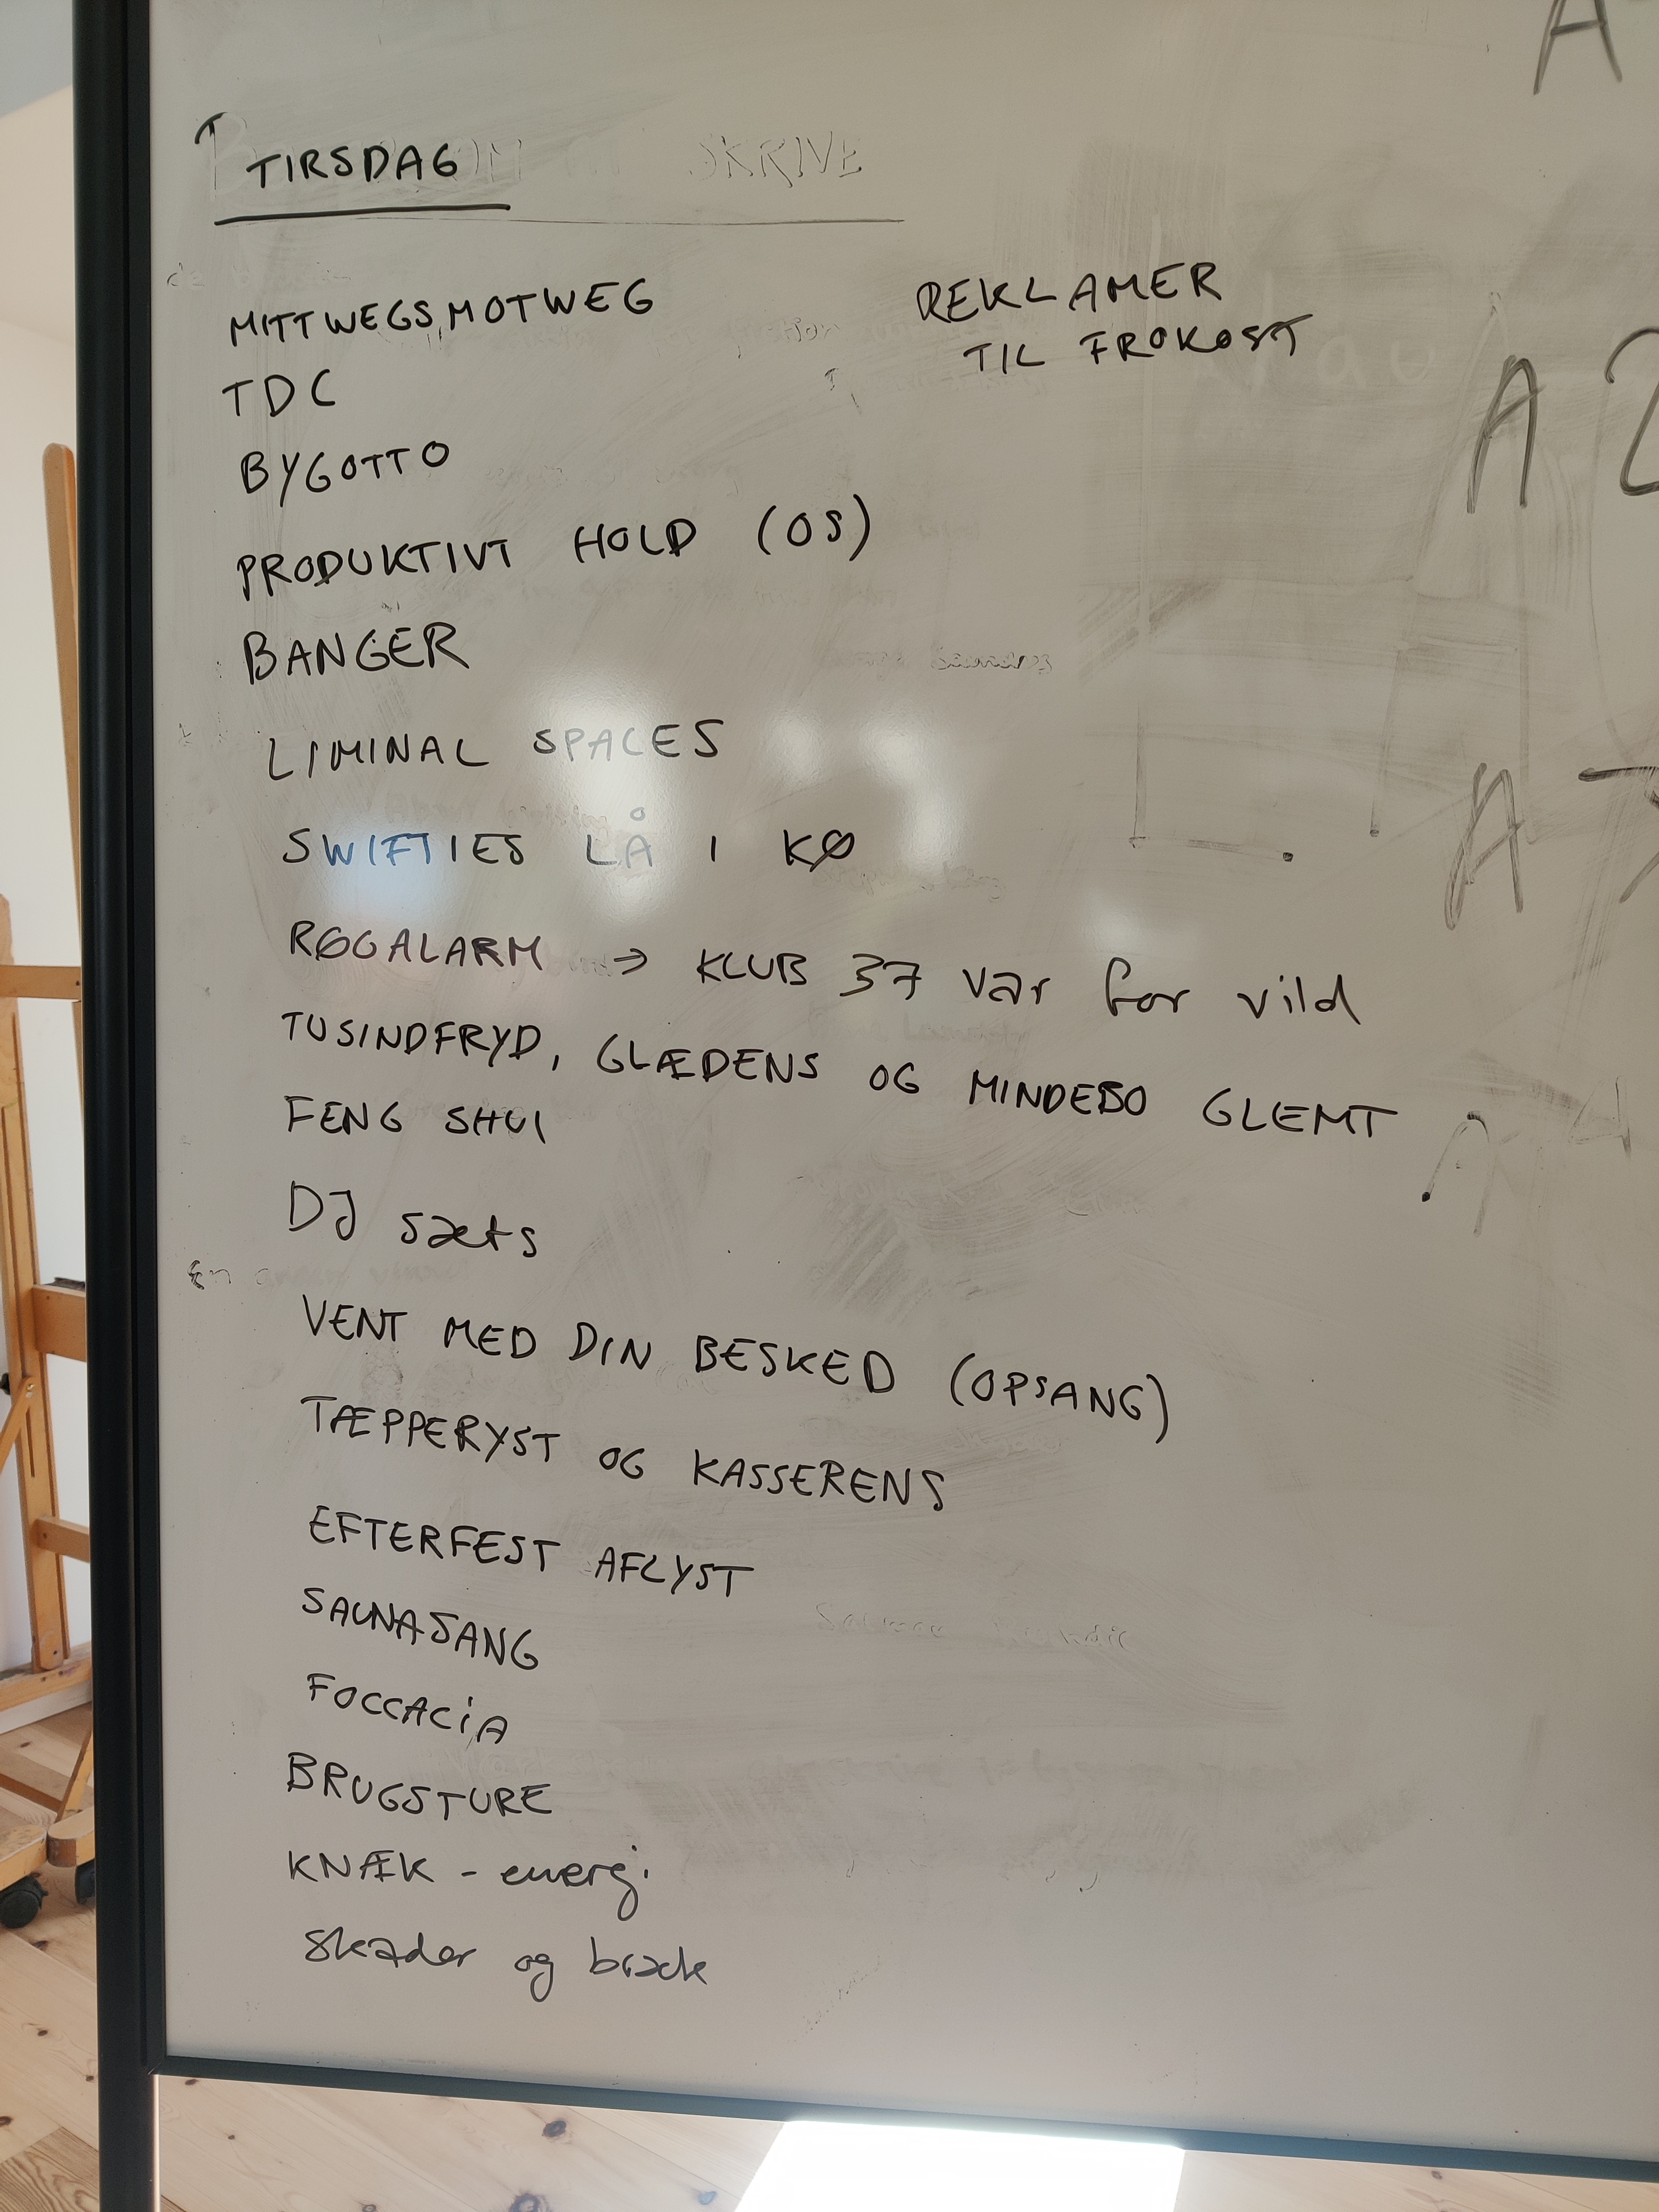 TIRSDAG
SKRIVE
MITTWEGS, MOTWEG
TDC
BYGOTTO
PRODUKTIVT HOLD (OS)
BANGER
LIMINAL SPACES
SWIFTIES LÅ I KØ
RØGALARM → KLUB 37 var for vild
TUSINDFRYD, GLÆDENS OG MINDEBO GLEMT
FENG SHUI
DJ sæts
En anden
VENT MED DIN BESKED (OPSANG)
TÆPPERYST OG KASSERENS
EFTERFEST AFLYST
SAUNASANG
FOCCACiA
BRUGSTURE
KNÆK - energi
skader og bræk
REKLAMER
TIL FROKOST
A
A 2
A
A 4